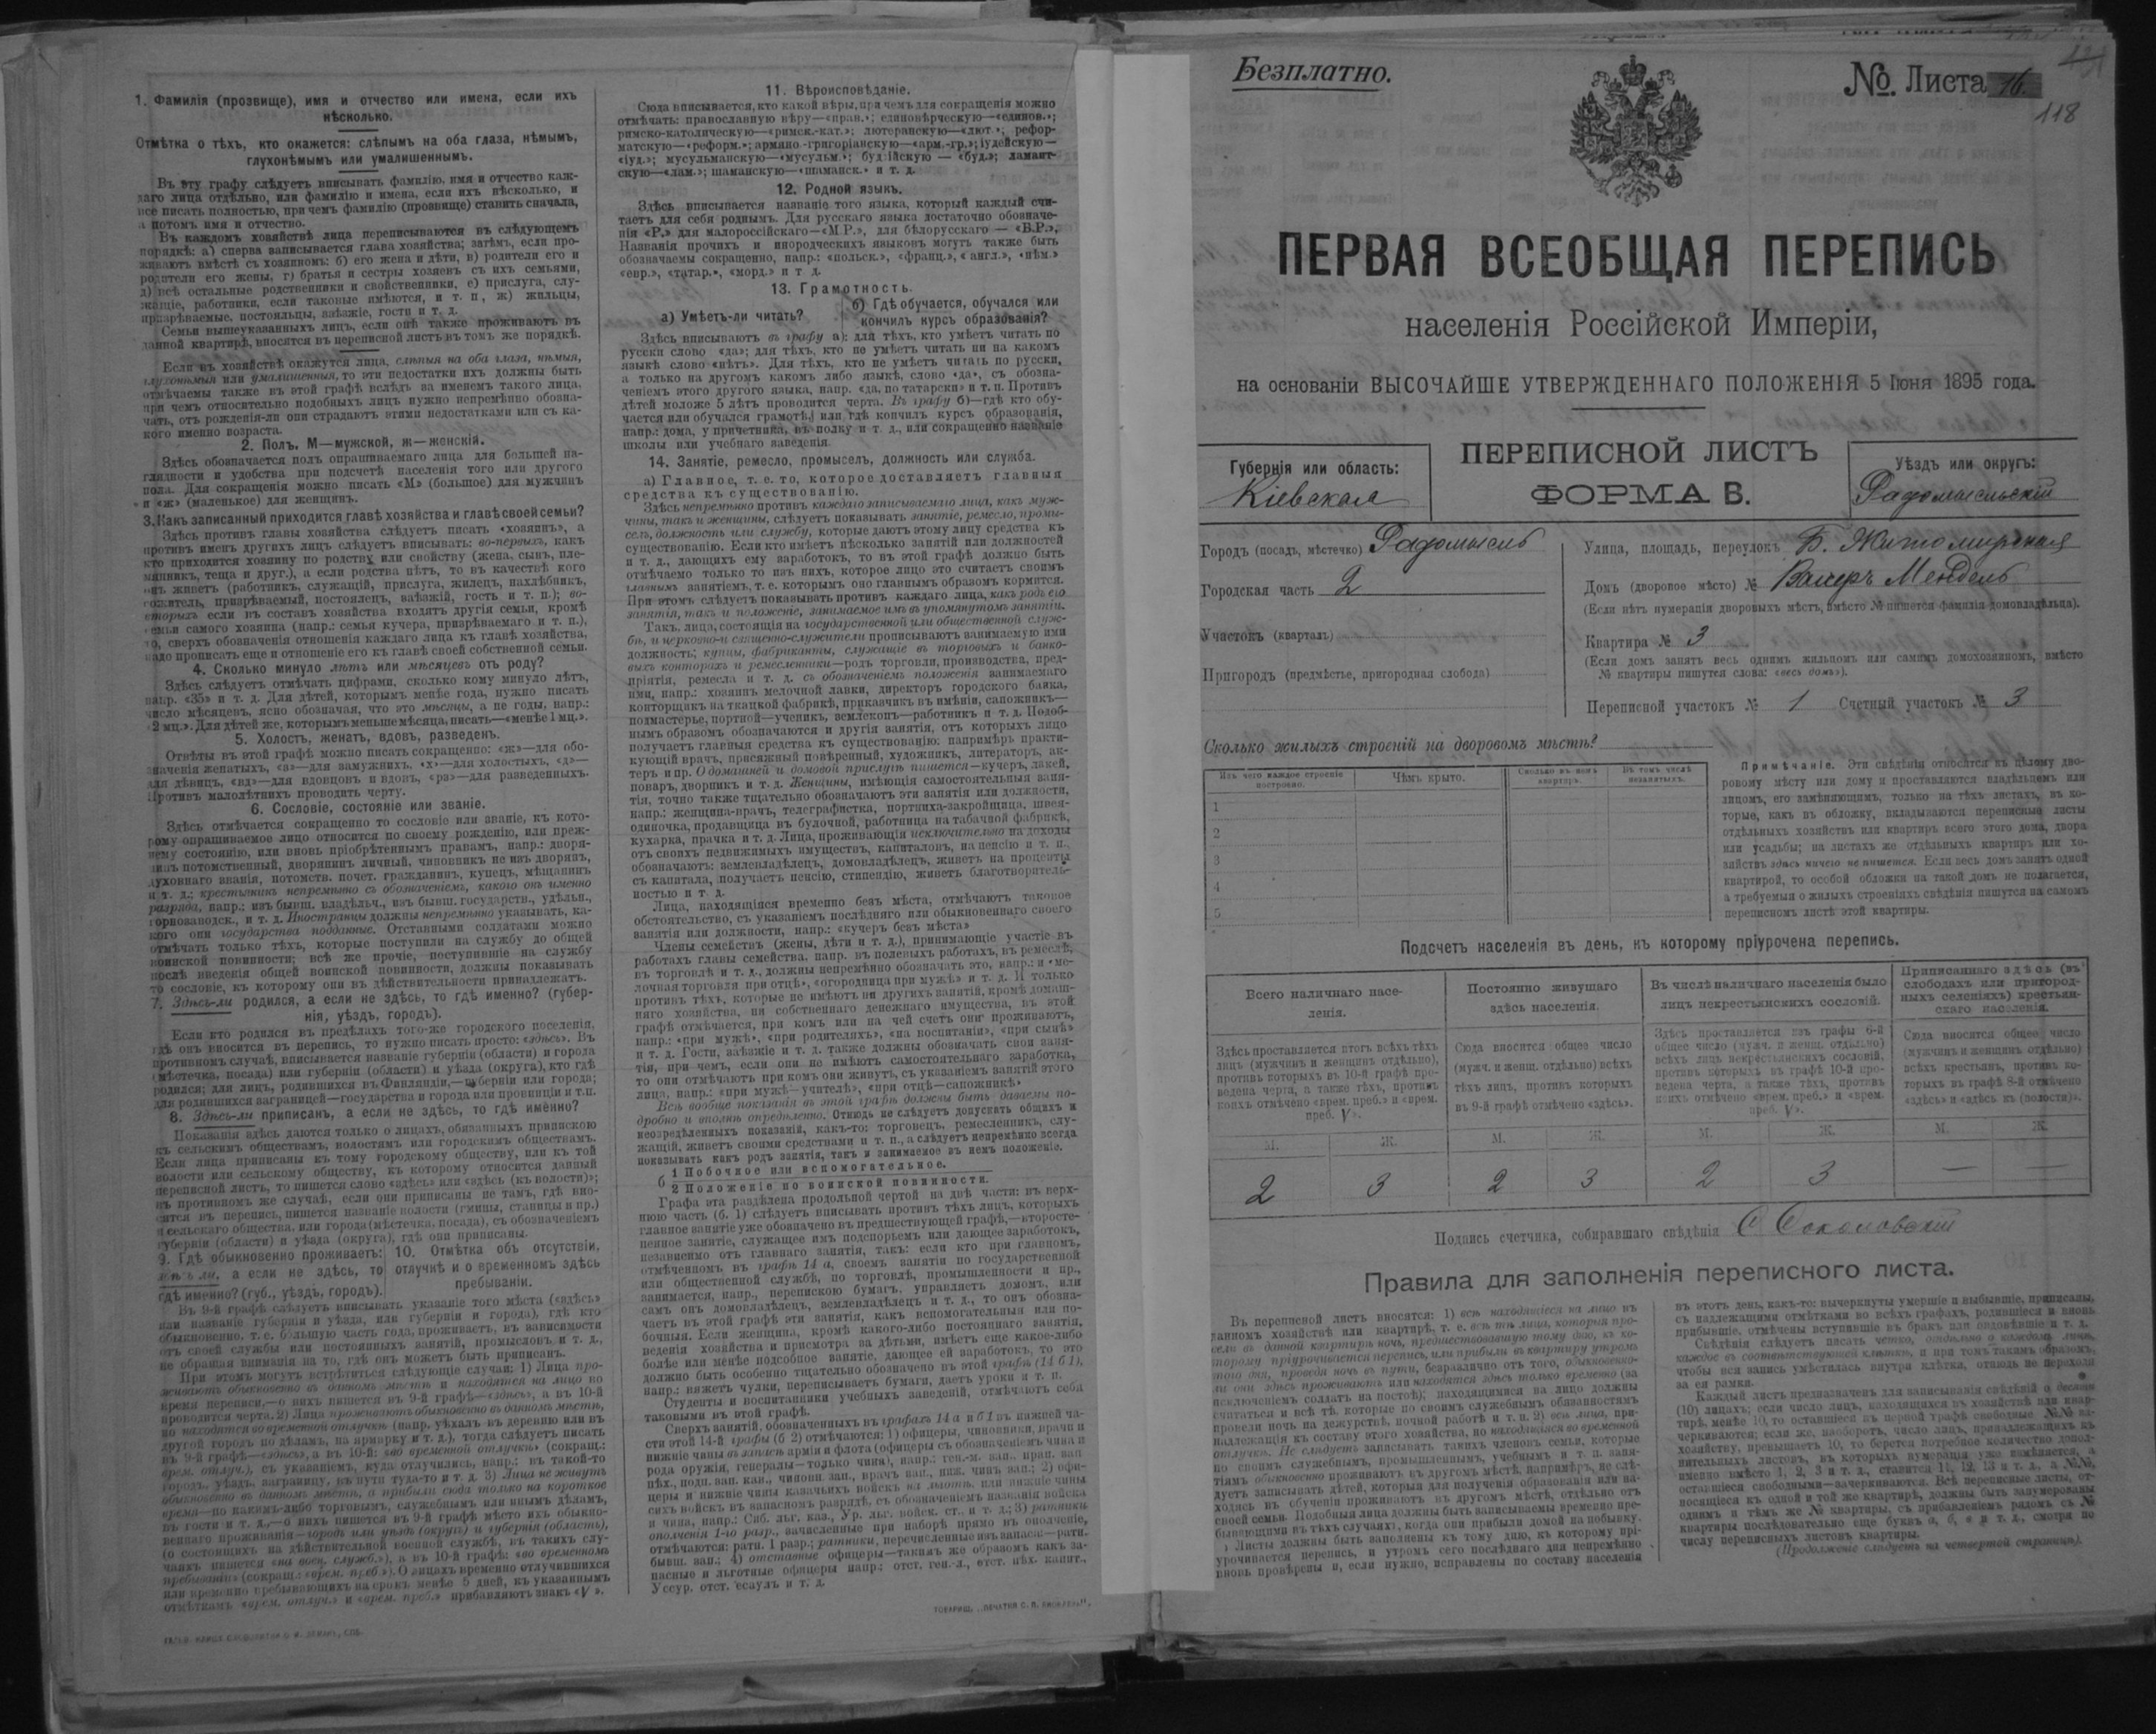 1. Фамилія (прозвище), имя и отчество или имена, если ихъ
нѣсколько.
Отмѣтка о тѣхъ, кто окажется: слѣпымъ на оба глаза, нѣмымъ,
глухонѣмымъ или умалишеннымъ.
Въ эту графу слѣдуетъ вписывать фамилію, имя и отчество каж-
даго лица отдѣльно, или фамилію и имена, если ихъ нѣсколько, и
все писать полностью, при чемъ фамилію (прозвище) ставить сначала,
а потомъ имя и отчество.
Въ каждомъ хозяйствѣ лица переписываются въ слѣдующемъ
порядкѣ: а) сперва записывается глава хозяйства; затѣмъ, если про-
живаютъ вмѣстѣ съ хозяиномъ: б) его жена и дѣти, в) родители его и
родители его жены, г) братья и сестры хозяевъ съ ихъ семьями,
д) всѣ остальные родственники и свойственники, е) прислуга, слу-
жащіе, работники, если таковые имѣются, и т. п., ж) жильцы,
призрѣваемые, постояльцы, заѣзжіе, гости и т. д.
Семьи вышеуказанныхъ лицъ, если онѣ также проживаютъ въ
данной квартирѣ, вносятся въ переписной листъ въ томъ же порядкѣ.
Если въ хозяйствѣ окажутся лица, слѣпыя на оба глаза, нѣмыя,
глухонѣмыя или умалишенныя, то эти недостатки ихъ должны быть
отмѣчаемы также въ этой графѣ вслѣдъ за именемъ такого лица,
при чемъ относительно подобныхъ лицъ нужно непремѣнно обозна-
чать, отъ рожденія-ли они страдаютъ этими недостатками или съ ка-
кого именно возраста.
2. Полъ. М—мужской, ж—женскій.
Здѣсь обозначается полъ опрашиваемаго лица для большей на-
глядности и удобства при подсчетѣ населенія того или другого
пола. Для сокращенія можно писать «М» (большое) для мужчинъ
и «ж» (маленькое) для женщинъ.
3. Какъ записанный приходится главѣ хозяйства и главѣ своей семьи?
Здѣсь противъ главы хозяйства слѣдуетъ писать «хозяинъ», а
противъ именъ другихъ лицъ слѣдуетъ вписывать: во-первыхъ, какъ
кто приходится хозяину по родству или свойству (жена, сынъ, пле-
мянникъ, теща и друг.), а если родства нѣтъ, то въ качествѣ кого
онъ живетъ (работникъ, служащій, прислуга, жилецъ, нахлѣбникъ,
сожитель, призрѣваемый, постоялецъ, заѣзжій, гость и т. п.); во-
вторыхъ если въ составъ хозяйства входятъ другія семьи, кромѣ
семьи самого хозяина (напр.: семья кучера, призрѣваемаго и т. п.),
то, сверхъ обозначенія отношенія каждаго лица къ главѣ хозяйства,
надо прописать еще и отношеніе его къ главѣ своей собственной семьи.
4. Сколько минуло лѣтъ или мѣсяцевъ отъ роду?
Здѣсь слѣдуетъ отмѣчать цифрами, сколько кому минуло лѣтъ,
напр. «35» и т. д. Для дѣтей, которымъ менѣе года, нужно писать
число мѣсяцевъ, ясно обозначая, что это мѣсяцы, а не годы, напр.:
«2 мц.». Для дѣтей же, которымъ меньше мѣсяца, писать—«менѣе 1 мц.».
5. Холостъ, женатъ, вдовъ, разведенъ.
Отвѣты въ этой графѣ можно писать сокращенно: «ж»—для обо-
значенія женатыхъ, «з»—для замужнихъ, «х»—для холостыхъ, «д»—
для дѣвицъ, «вд»—для вдовцовъ и вдовъ, «рз»—для разведенныхъ.
Противъ малолѣтнихъ проводить черту.
6. Сословіе, состояніе или званіе.
Здѣсь отмѣчается сокращенно то сословіе или званіе, къ кото-
рому опрашиваемое лицо относится по своему рожденію, или преж-
нему состоянію, или вновь пріобрѣтеннымъ правамъ, напр.: дворя-
нинъ потомственный, дворянинъ личный, чиновникъ не изъ дворянъ,
духовнаго званія, потомств. почет. гражданинъ, купецъ, мѣщанинъ
и т. д.; крестьянинъ непремѣнно съ обозначеніемъ, какого онъ именно
разряда, напр.: изъ бывш. владѣльч., изъ бывш. государств., удѣльн.,
горнозаводск., и т. д. Иностранцы должны непремѣнно указывать, ка-
кого они государства подданные. Отставными солдатами можно
отмѣчать только тѣхъ, которые поступили на службу до общей
воинской повинности; всѣ же прочіе, поступившіе на службу
послѣ введенія общей воинской повинности, должны показывать
то сословіе, къ которому они въ дѣйствительности принадлежатъ.
7. Здѣсь-ли родился, а если не здѣсь, то гдѣ именно? (губер-
нія, уѣздъ, городъ).
Если кто родился въ предѣлахъ того-же городского поселенія,
гдѣ онъ вносится въ перепись, то нужно писать просто: «здѣсь». Въ
противномъ случаѣ, вписывается названіе губерніи (области) и города
(мѣстечка, посада) или губерніи (области) и уѣзда (округа), кто гдѣ
родился; для лицъ, родившихся въ Финляндіи,—губерніи или города;
для родившихся заграницей—государства и города или провинціи и т.п.
8. Здѣсь-ли приписанъ, а если не здѣсь, то гдѣ именно?
Показанія здѣсь даются только о лицахъ, обязанныхъ припискою
къ сельскимъ обществамъ, волостямъ или городскимъ обществамъ.
Если лица приписаны къ тому городскому обществу, или къ той
волости или сельскому обществу, къ которому относится данный
переписной листъ, то пишется слово «здѣсь» или «здѣсь (къ волости)»;
въ противномъ же случаѣ, если они приписаны не тамъ, гдѣ вно-
сятся въ перепись, пишется названіе волости (гмины, станицы и пр.)
и сельскаго общества, или города (мѣстечка, посада), съ обозначеніемъ
губерніи (области) и уѣзда (округа), гдѣ они приписаны.
9. Гдѣ обыкновенно проживаетъ:
здѣсь ли, а если не здѣсь, то
гдѣ именно? (губ., уѣздъ, городъ).
10. Отмѣтка объ отсутствіи,
отлучкѣ и о временномъ здѣсь
пребываніи.
Въ 9-й графѣ слѣдуетъ вписывать указаніе того мѣста («здѣсь»
или названіе губерніи и уѣзда, или губерніи и города), гдѣ кто
обыкновенно, т. е. бо́льшую часть года, проживаетъ, въ зависимости
отъ своей службы или постоянныхъ занятій, промысловъ и т. д.,
не обращая вниманія на то, гдѣ онъ можетъ быть приписанъ.
При этомъ могутъ встрѣтиться слѣдующіе случаи: 1) Лица про-
живаютъ обыкновенно въ данномъ мѣстѣ и находятся на лицо во
время переписи,—о нихъ пишется въ 9-й графѣ—«здѣсь», а въ 10-й
проводится черта. 2) Лица проживаютъ обыкновенно въ данномъ мѣстѣ,
но находятся во временной отлучкѣ (напр. уѣхалъ въ деревню или въ
другой городъ по дѣламъ, на ярмарку и т. д.), тогда слѣдуетъ писать
въ 9-й графѣ—«здѣсь», а въ 10-й: «во временной отлучкѣ» (сокращ.:
врем. отлуч.), съ указаніемъ, куда отлучились, напр.: въ такой-то
городъ, уѣздъ, заграницу, въ пути туда-то и т. д. 3) Лица не живутъ
обыкновенно въ данномъ мѣстѣ, а прибыли сюда только на короткое
время—по какимъ-либо торговымъ, служебнымъ или инымъ дѣламъ,
въ гости и т. д.,—о нихъ пишется въ 9-й графѣ мѣсто ихъ обыкно-
веннаго проживанія—городъ или уѣздъ (округъ) и губернія (область),
(о состоящихъ на дѣйствительной военной службѣ, въ такихъ слу-
чаяхъ пишется «на воен. служб.»), а въ 10-й графѣ: «во временномъ
пребываніи» (сокращ.: «врем. преб.»). О лицахъ временно отлучившихся
или временно пребывающихъ на срокъ менѣе 5 дней, къ указаннымъ
отмѣткамъ «врем. отлуч.» и «врем. преб.» прибавляютъ знакъ «V».
11. Вѣроисповѣданіе.
Сюда вписывается, кто какой вѣры, при чемъ для сокращенія можно
отмѣчать: православную вѣру—«прав.»; единовѣрческую—«единов.»;
римско-католическую—«римск.-кат.»; лютеранскую—«лют.»; рефор-
матскую—«реформ.»; армяно-григоріанскую—«арм.-гр.»; іудейскую—
«іуд.»; мусульманскую—«мусульм.»; буддійскую — «буд.»; ламаит-
скую—«лам.»; шаманскую—«шаманск.» и т. д.
12. Родной языкъ.
Здѣсь вписывается названіе того языка, который каждый счи-
таетъ для себя роднымъ. Для русскаго языка достаточно обозначе-
нія «Р.» для малороссійскаго—«М.Р.», для бѣлорусскаго — «Б.Р.»,
Названія прочихъ и инородческихъ языковъ могутъ также быть
обозначаемы сокращенно, напр.: «польск.», «франц.», «англ.», «нѣм.»
«евр.», «татар.», «морд.» и т. д.
13. Грамотность.
а) Умѣетъ-ли читать?
б) Гдѣ обучается, обучался или
кончилъ курсъ образованія?
Здѣсь вписываютъ въ графу а): для тѣхъ, кто умѣетъ читать по
русски слово «да»; для тѣхъ, кто не умѣетъ читать ни на какомъ
языкѣ слово «нѣтъ». Для тѣхъ, кто не умѣетъ читать по русски,
а только на другомъ какомъ либо языкѣ, слово «да», съ обозна-
ченіемъ этого другого языка, напр. «да, по татарски» и т. п. Противъ
дѣтей моложе 5 лѣтъ проводится черта. Въ графу б)—гдѣ кто обу-
чается или обучался грамотѣ, или гдѣ кончилъ курсъ образованія,
напр.: дома, у причетника, въ полку и т. д., или сокращенно названіе
школы или учебнаго заведенія.
14. Занятіе, ремесло, промыселъ, должность или служба.
а) Главное, т. е. то, которое доставляетъ главныя
средства къ существованію.
Здѣсь непремѣнно противъ каждаго записываемаго лица, какъ муж-
чины, такъ и женщины, слѣдуетъ показывать занятіе, ремесло, промы-
селъ, должность или службу, которые даютъ этому лицу средства къ
существованію. Если кто имѣетъ нѣсколько занятій или должностей
и т. д., дающихъ ему заработокъ, то въ этой графѣ должно быть
отмѣчаемо только то изъ нихъ, которое лицо это считаетъ своимъ
главнымъ занятіемъ, т. е. которымъ оно главнымъ образомъ кормится.
При этомъ слѣдуетъ показывать противъ каждаго лица, какъ родъ его
занятія, такъ и положеніе, занимаемое имъ въ упомянутомъ занятіи.
Такъ, лица, состоящія на государственной или общественной служ-
бѣ, и церковно-и священно-служители прописываютъ занимаемую ими
должность; купцы, фабриканты, служащіе въ торговыхъ и банко-
выхъ конторахъ и ремесленники—родъ торговли, производства, пред-
пріятія, ремесла и т. д. съ обозначеніемъ положенія занимаемаго
ими, напр.: хозяинъ мелочной лавки, директоръ городского банка,
конторщикъ на ткацкой фабрикѣ, приказчикъ въ имѣніи, сапожникъ—
подмастерье, портной—ученикъ, землекопъ—работникъ и т. д. Подоб-
нымъ образомъ обозначаются и другія занятія, отъ которыхъ лицо
получаетъ главныя средства къ существованію: напримѣръ, практи-
кующій врачъ, присяжный повѣренный, художникъ, литераторъ, ак-
теръ и пр. О домашней и домовой прислугѣ пишется—кучеръ, лакей,
поваръ, дворникъ и т. д. Женщины, имѣющія самостоятельныя заня-
тія, точно также тщательно обозначаютъ эти занятія или должности,
напр.: женщина-врачъ, телеграфистка, портниха-закройщица, швея-
одиночка, продавщица въ булочной, работница на табачной фабрикѣ,
кухарка, прачка и т. д. Лица, проживающія исключительно на доходы
отъ своихъ недвижимыхъ имуществъ, капиталовъ, на пенсію и т. п.
обозначаютъ: землевладѣлецъ, домовладѣлецъ, живетъ на проценты
съ капитала, получаетъ пенсію, стипендію, живетъ благотворитель-
ностью и т. д.
Лица, находящіяся временно безъ мѣста, отмѣчаютъ таковое
обстоятельство, съ указаніемъ послѣдняго или обыкновеннаго своего
занятія или должности, напр.: «кучеръ безъ мѣста»
Члены семействъ (жены, дѣти и т. д.), принимающіе участіе въ
работахъ главы семейства, напр. въ полевыхъ работахъ, въ ремеслѣ,
въ торговлѣ и т. д., должны непремѣнно обозначать это, напр.: «ме-
лочная торговля при отцѣ», «огородница при мужѣ» и т. д. И только
противъ тѣхъ, которые не имѣютъ ни другихъ занятій, кромѣ домаш-
няго хозяйства, ни собственнаго денежнаго имущества, въ этой
графѣ отмѣчается, при комъ или на чей счетъ они проживаютъ,
напр.: «при мужѣ», «при родителяхъ», «на воспитаніи», «при сынѣ»
и т. д. Гости, заѣзжіе и т. д. также должны обозначать свои заня-
тія, при чемъ, если они не имѣютъ самостоятельнаго заработка,
то они отмѣчаютъ при комъ они живутъ, съ указаніемъ занятій этого
лица, напр.: «при мужѣ—учителѣ», «при отцѣ—сапожникѣ»
Всѣ вообще показанія въ этой графѣ должны быть даваемы по-
дробно и вполнѣ опредѣленно. Отнюдь не слѣдуетъ допускать общихъ и
неопредѣленныхъ показаній, какъ-то: торговецъ, ремесленникъ, слу-
жащій, живетъ своими средствами и т. п., а слѣдуетъ непремѣнно всегда
показывать какъ родъ занятія, такъ и занимаемое въ немъ положеніе.
1 Побочное или вспомогательное.
б
2 Положеніе по воинской повинности.
Графа эта раздѣлена продольной чертой на двѣ части: въ верх-
нюю часть (б. 1) слѣдуетъ вписывать противъ тѣхъ лицъ, которыхъ
главное занятіе уже обозначено въ предшествующей графѣ,—второсте-
пенное занятіе, служащее имъ подспорьемъ или дающее заработокъ,
независимо отъ главнаго занятія, такъ: если кто при главномъ,
отмѣченномъ въ графѣ 14 а, своемъ занятіи по государственной
или общественной службѣ, по торговлѣ, промышленности и пр.,
занимается, напр., перепискою бумагъ, управляетъ домомъ, или
самъ онъ домовладѣлецъ, землевладѣлецъ и т. д., то онъ обозна-
чаетъ въ этой графѣ эти занятія, какъ вспомогательныя или по-
бочныя. Если женщина, кромѣ какого-либо постояннаго занятія,
веденія хозяйства и присмотра за дѣтьми, имѣетъ еще какое-либо
болѣе или менѣе подсобное занятіе, дающее ей заработокъ, то это
должно быть особенно тщательно обозначено въ этой графѣ (14 б 1),
напр.: вяжетъ чулки, переписываетъ бумаги, даетъ уроки и т. п.
Студенты и воспитанники учебныхъ заведеній, отмѣчаютъ себя
таковыми въ этой графѣ.
Сверхъ занятій, обозначенныхъ въ графахъ 14 а и б 1 въ нижней ча-
сти этой 14-й графы (б 2) отмѣчаются: 1) офицеры, чиновники, врачи и
нижніе чины въ запасѣ арміи и флота (офицеры съ обозначеніемъ чина и
рода оружія, генералы—только чина), напр.: ген.-м. зап., прап. зап.
пѣх., подп. зап. кав., чиновн. зап., врачъ зап., ниж. чинъ зап.; 2) офи-
церы и нижніе чины казачьихъ войскъ на льготѣ, или нижніе чины
сихъ войскъ въ запасномъ разрядѣ, съ обозначеніемъ названія войска
и чина, напр.: Сиб. льг. каз., Ур. льг. войск. ст., и т. д.; 3) ратники
ополченія 1-го разр., зачисленные при наборѣ прямо въ ополченіе,
отмѣчаются: ратн. 1 разр.; ратники, перечисленные изъ запаса:—ратн.
бывш. зап.; 4) отставные офицеры—такимъ же образомъ какъ за-
пасные и льготные офицеры напр.: отст. ген.-л., отст. пѣх. капит.,
Уссур. отст. есаулъ и т. д.
Безплатно.
№. Листа 16.
118
ПЕРВАЯ ВСЕОБЩАЯ ПЕРЕПИСЬ
населенія Россійской Имперіи,
на основаніи ВЫСОЧАЙШЕ УТВЕРЖДЕННАГО ПОЛОЖЕНІЯ 5 Іюня 1895 года.
Губернія или область:
Кіевская
ПЕРЕПИСНОЙ ЛИСТЪ
ФОРМА В.
Уѣздъ или округъ:
Радомысльскій
Городъ (посадъ, мѣстечко) Радомысль
Городская часть 2
Участокъ (кварталъ)
Пригородъ (предмѣстье, пригородная слобода)
Улица, площадь, переулокъ Б. Житомирская
Домъ (дворовое мѣсто) № Мендель
(Если нѣтъ нумераціи дворовыхъ мѣстъ, вмѣсто № пишется фамилія домовладѣльца).
Квартира № 3
(Если домъ занятъ весь однимъ жильцомъ или самимъ домохозяиномъ, вмѣсто
№ квартиры пишутся слова: «весь домъ»).
Переписной участокъ № 1 Счетный участокъ № 3
Сколько жилыхъ строеній на дворовомъ мѣстѣ?
Изъ чего каждое строеніе
построено.
Чѣмъ крыто.
Сколько въ немъ
квартиръ.
Въ томъ числѣ
незанятыхъ.
1
2
3
4
5
Примѣчаніе. Эти свѣдѣнія относятся къ цѣлому дво-
ровому мѣсту или дому и проставляются владѣльцемъ или
лицомъ, его замѣняющимъ, только на тѣхъ листахъ, въ ко-
торые, какъ въ обложку, вкладываются переписные листы
отдѣльныхъ хозяйствъ или квартиръ всего этого дома, двора
или усадьбы; на листахъ же отдѣльныхъ квартиръ или хо-
зяйствъ здѣсь ничего не пишется. Если весь домъ занятъ одной
квартирой, то особой обложки на такой домъ не полагается,
а требуемыя о жилыхъ строеніяхъ свѣдѣнія пишутся на самомъ
переписномъ листѣ этой квартиры.
Подсчетъ населенія въ день, къ которому пріурочена перепись.
Всего наличнаго насе-
ленія.
Постоянно живущаго
здѣсь населенія.
Въ числѣ наличнаго населенія было
лицъ некрестьянскихъ сословій.
Приписаннаго здѣсь (въ
слободахъ или пригород-
ныхъ селеніяхъ) крестьян-
скаго населенія.
Здѣсь проставляется итогъ всѣхъ тѣхъ
лицъ (мужчинъ и женщинъ отдѣльно),
противъ которыхъ въ 10-й графѣ про-
ведена черта, а также тѣхъ, противъ
коихъ отмѣчено «врем. преб.» и «врем.
преб. V».
Сюда вносится общее число
(мужч. и женщ. отдѣльно) всѣхъ
тѣхъ лицъ, противъ которыхъ
въ 9-й графѣ отмѣчено «здѣсь».
Здѣсь проставляется изъ графы 6-й
общее число (мужч. и женщ. отдѣльно)
всѣхъ лицъ некрестьянскихъ сословій,
противъ которыхъ въ графѣ 10-й про-
ведена черта, а также тѣхъ, противъ
коихъ отмѣчено «врем. преб.» и «врем.
преб. V».
Сюда вносится общее число
(мужчинъ и женщинъ отдѣльно)
всѣхъ крестьянъ, противъ ко-
торыхъ въ графѣ 8-й отмѣчено
«здѣсь» и «здѣсь къ (волости)».
М. Ж. М. Ж. М. Ж. М. Ж.
2 3 2 3 2 3 — —
Подпись счетчика, собиравшаго свѣдѣнія С Соколовскій
Правила для заполненія переписного листа.
Въ переписной листъ вносятся: 1) всѣ находящіеся на лицо въ
данномъ хозяйствѣ или квартирѣ, т. е. всѣ тѣ лица, которыя про-
вели въ данной квартирѣ ночь, предшествовавшую тому дню, къ ко-
торому пріурочивается перепись, или прибыли въ квартиру утромъ
того дня, проведя ночь въ пути, безразлично отъ того, обыкновенно-
ли они здѣсь проживаютъ или находятся здѣсь только временно (за
исключеніемъ солдатъ на постоѣ); находящимися на лицо должны
считаться и всѣ тѣ, которые по своимъ служебнымъ обязанностямъ
провели ночь на дежурствѣ, ночной работѣ и т. п. 2) всѣ лица, при-
надлежащія къ составу этого хозяйства, но находящіяся во временной
отлучкѣ. Не слѣдуетъ записывать такихъ членовъ семьи, которые
по своимъ служебнымъ, промышленнымъ, учебнымъ и т. п. заня-
тіямъ обыкновенно проживаютъ въ другомъ мѣстѣ, напримѣръ, не слѣ-
дуетъ записывать дѣтей, которыя для полученія образованія или на-
ходясь въ обученіи проживаютъ въ другомъ мѣстѣ, отдѣльно отъ
своей семьи. Подобныя лица должны быть вписываемы временно пре-
бывающими въ тѣхъ случаяхъ, когда они прибыли домой на побывку.
Листы должны быть заполнены къ тому дню, къ которому прі-
урочивается перепись, и утромъ сего послѣдняго дня непремѣнно
вновь провѣрены и, если нужно, исправлены по составу населенія
въ этотъ день, какъ-то: вычеркнуты умершіе и выбывшіе, приписаны,
съ надлежащими отмѣтками во всѣхъ графахъ, родившіеся и вновь
прибывшіе, отмѣчены вступившіе въ бракъ или овдовѣвшіе и т. д.
Свѣдѣнія слѣдуетъ писать четко, отдѣльно о каждомъ лицѣ,
каждое въ соотвѣтствующей клѣткѣ, и при томъ такимъ образомъ,
чтобы вся запись умѣстилась внутри клѣтки, отнюдь не переходя
за ея рамки.
Каждый листъ предназначенъ для записыванія свѣдѣній о десяти
(10) лицахъ; если число лицъ, находящихся въ хозяйствѣ или квар-
тирѣ, менѣе 10, то оставшіеся въ первой графѣ свободные №№ за-
черкиваются; если же, наоборотъ, число лицъ, принадлежащихъ къ
хозяйству, превышаетъ 10, то берется потребное количество допол-
нительныхъ листовъ, въ которыхъ нумерація уже измѣняется, а
именно вмѣсто 1, 2, 3 и т. д., ставится 11, 12, 13 и т. д., а №№,
оставшіеся свободными—зачеркиваются. Всѣ переписные листы, от-
носящіеся къ одной и той же квартирѣ, должны быть занумерованы
однимъ и тѣмъ же № квартиры, съ прибавленіемъ рядомъ съ №
квартиры послѣдовательно еще буквъ а, б, в и т. д., смотря по
числу переписныхъ листовъ квартиры.
(Продолженіе слѣдуетъ на четвертой страницѣ).